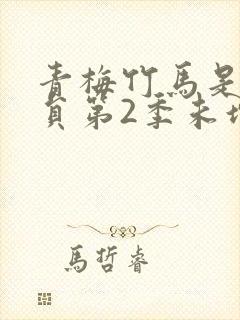 青梅竹馬是
員第2季未
馬哲睿